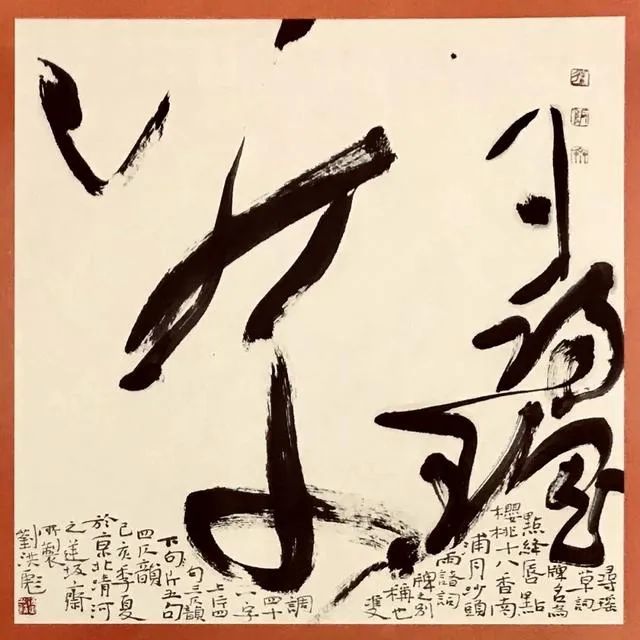 尋瑤
草
尋瑤
草詞
牌名為
點絳唇點
櫻桃十八香南
浦月沙頭
雨諸詞
牌之別
稱也
雙
調
四十
八字
上片四
句三仄韻
下片五句
四仄韻
己亥季夏
於京北清河
之逆坂齋
所製
劉洪彪